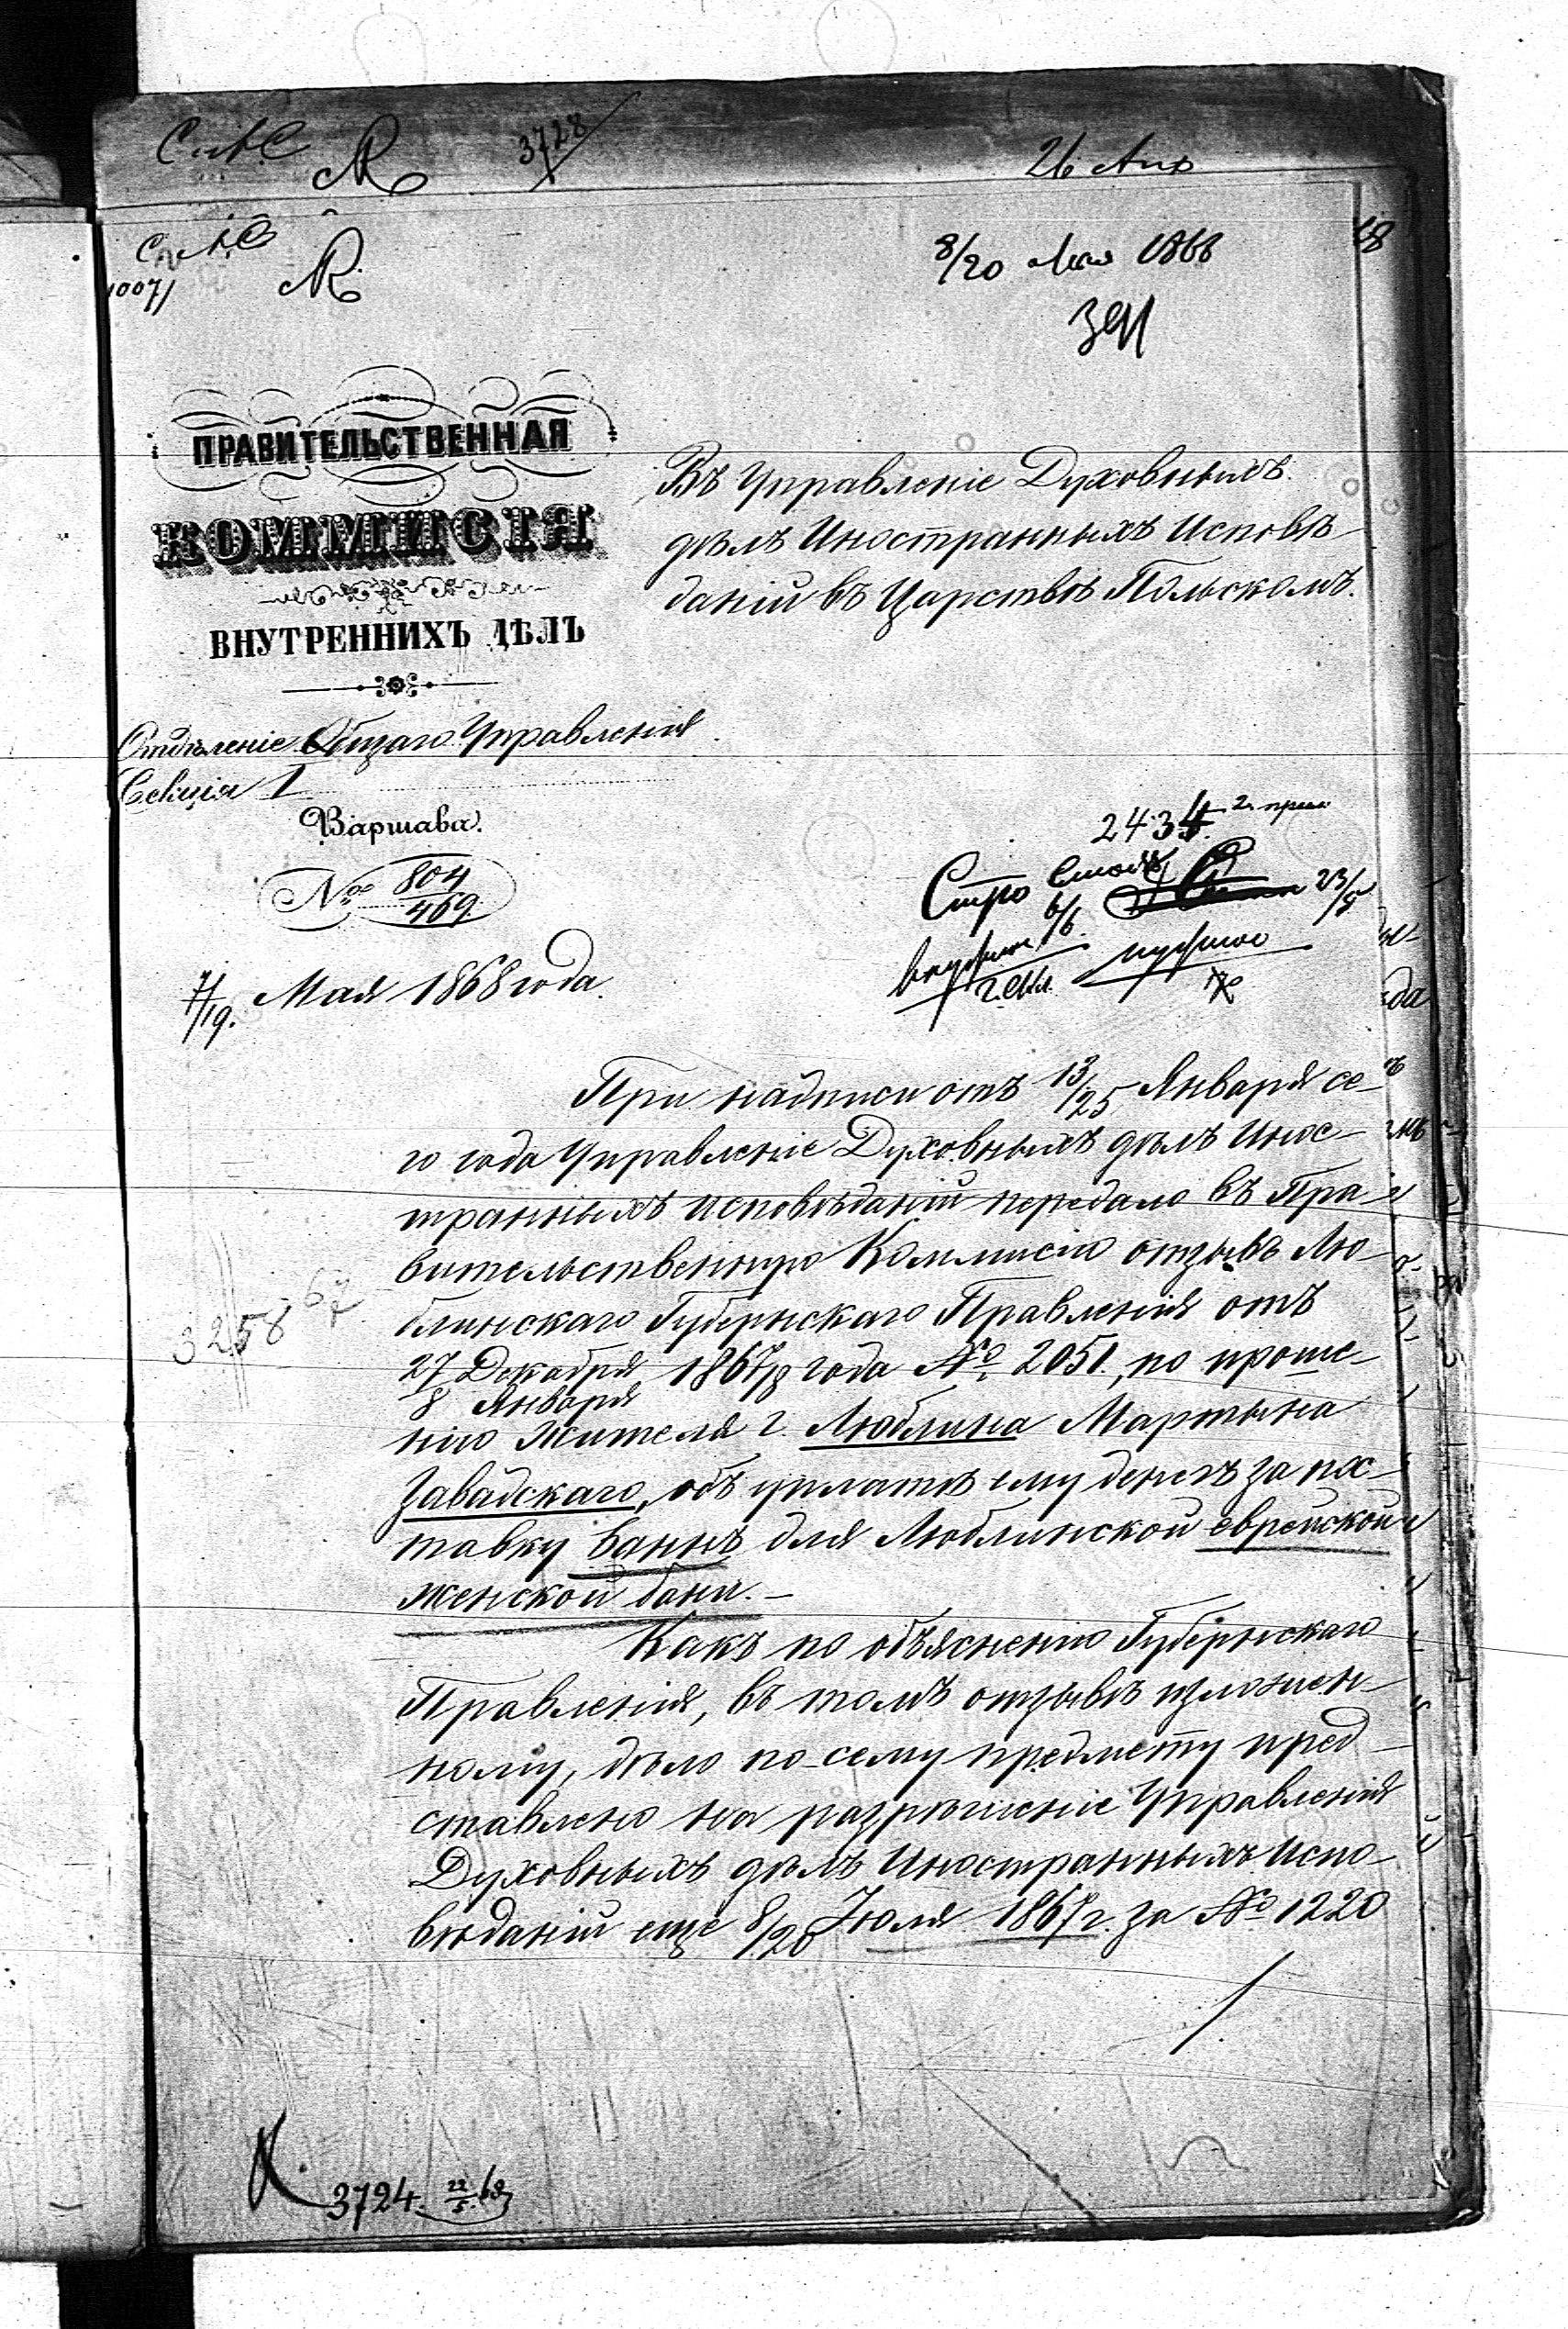 3728
26 Апр
8/20 Мая 1868
391
1007/
18
ПРАВИТЕЛЬСТВЕННАЯ
КОММИСІЯ
ВНУТРЕННИХЪ ДѢЛЪ
Въ Управленіе Духовныхъ
дѣлъ Иностранныхъ Исповѣ-
даній въ Царствѣ Польскомъ.
Отдѣленіе Общаго Управленія
Секція I
Варшава.
№ 804/469
7/19. Мая 1868 года.
2434.
23/5
При надписи отъ 13/25 Января се-
го года Управленіе Духовныхъ дѣлъ Инос-
транныхъ Исповѣданій передало въ Пра-
вительственную Коммисію отзывъ Лю-
блинскаго Губернскаго Правленія отъ
27 Декабря/8 Января 1867/8 года № 2051, по проше-
нію жителя г. Люблина Мартына
Завадскаго, объ уплатѣ ему денегъ за пос-
тавку ваннъ для Люблинской еврейской
женской бани. –
3258 67
Какъ по объясненію Губернскаго
Правленія, въ томъ отзывѣ изложен-
ному, дѣло по сему предмету пред-
ставлено на разрѣшеніе Управленія
Духовныхъ дѣлъ Иностранныхъ Испо-
вѣданій еще 8/20 Іюля 1867 г. за № 1220
3724. 22/5 68